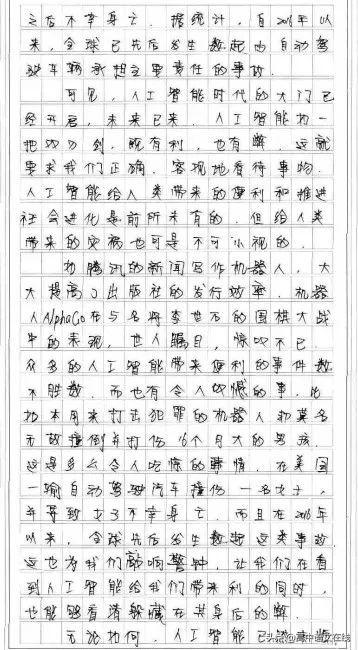 之后不幸身亡。据统计,自2016年以
来,全球已先后发生数起由自动驾
驶车辆承担主要责任的事故。
可见,人工智能时代的大门已
经开启,未来已来。人工智能如一
把双刃剑,既有利,也有弊,这就
要求我们正确、客观地看待事物。
人工智能给人类带来的便利和推进
社会进化是前所未有的,但给人类
带来的灾祸也可是不可小视的。
如腾讯的新闻写作机器人,大
大提高了出版社的发行效率,机器
人AlphaGo在与名将李世石的围棋大战
中的表现,世人瞩目,惊叹不已。
众多的人工智能带来便利的事件数
不胜数。而也有令人叹憾的事,比
如本用来打击犯罪的机器人却莫名
无故撞倒并打伤16个月大的男孩,
这是多么令人吃惊的事情,在美国
一辆自动驾驶汽车撞伤一名女士,
并导致女子不幸身亡,而且在2016年
以来,全球先后发生数起这类事故
这也为我们敲响警钟,让我们在看
到人工智能给我们带来利的同时,
也能够看清躲藏在其身后的弊。
无论如何,人工智能已
头条@高中语文在线